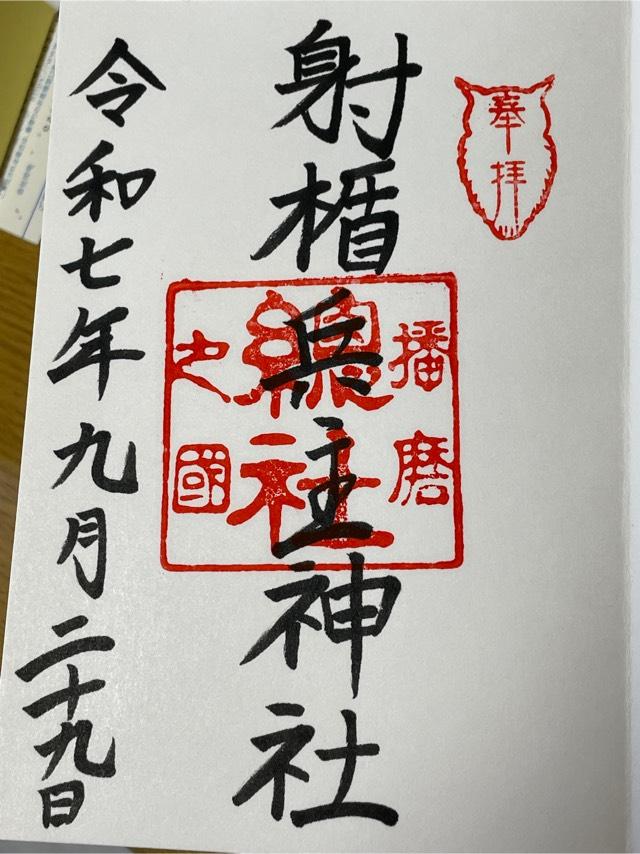 奉拝
射楯兵主神社
播磨
總社
之國
令和七年九月二十九日